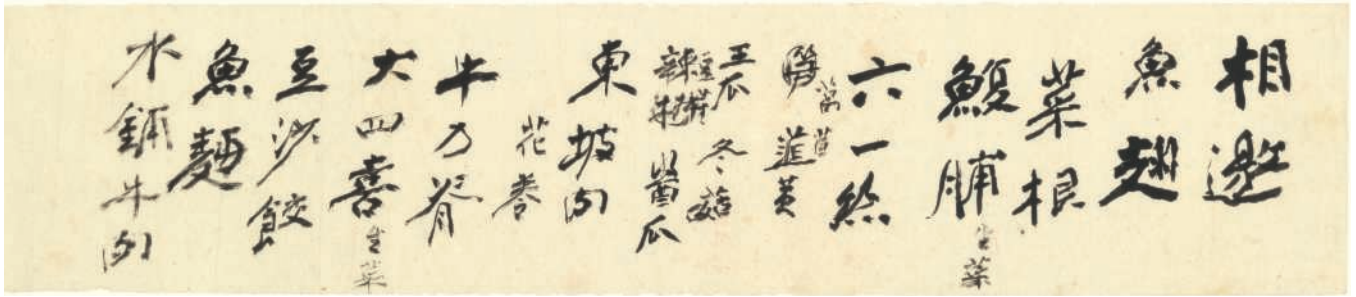 相邀
魚翅
菜根
鰒脯 生菜
六一絲
萵苣
韮黃
王瓜 冬菇
辣椒 醬瓜
東坡肉
花卷
牛乃脊
大四喜 生菜
豆沙餃
魚麵
水鋪牛肉